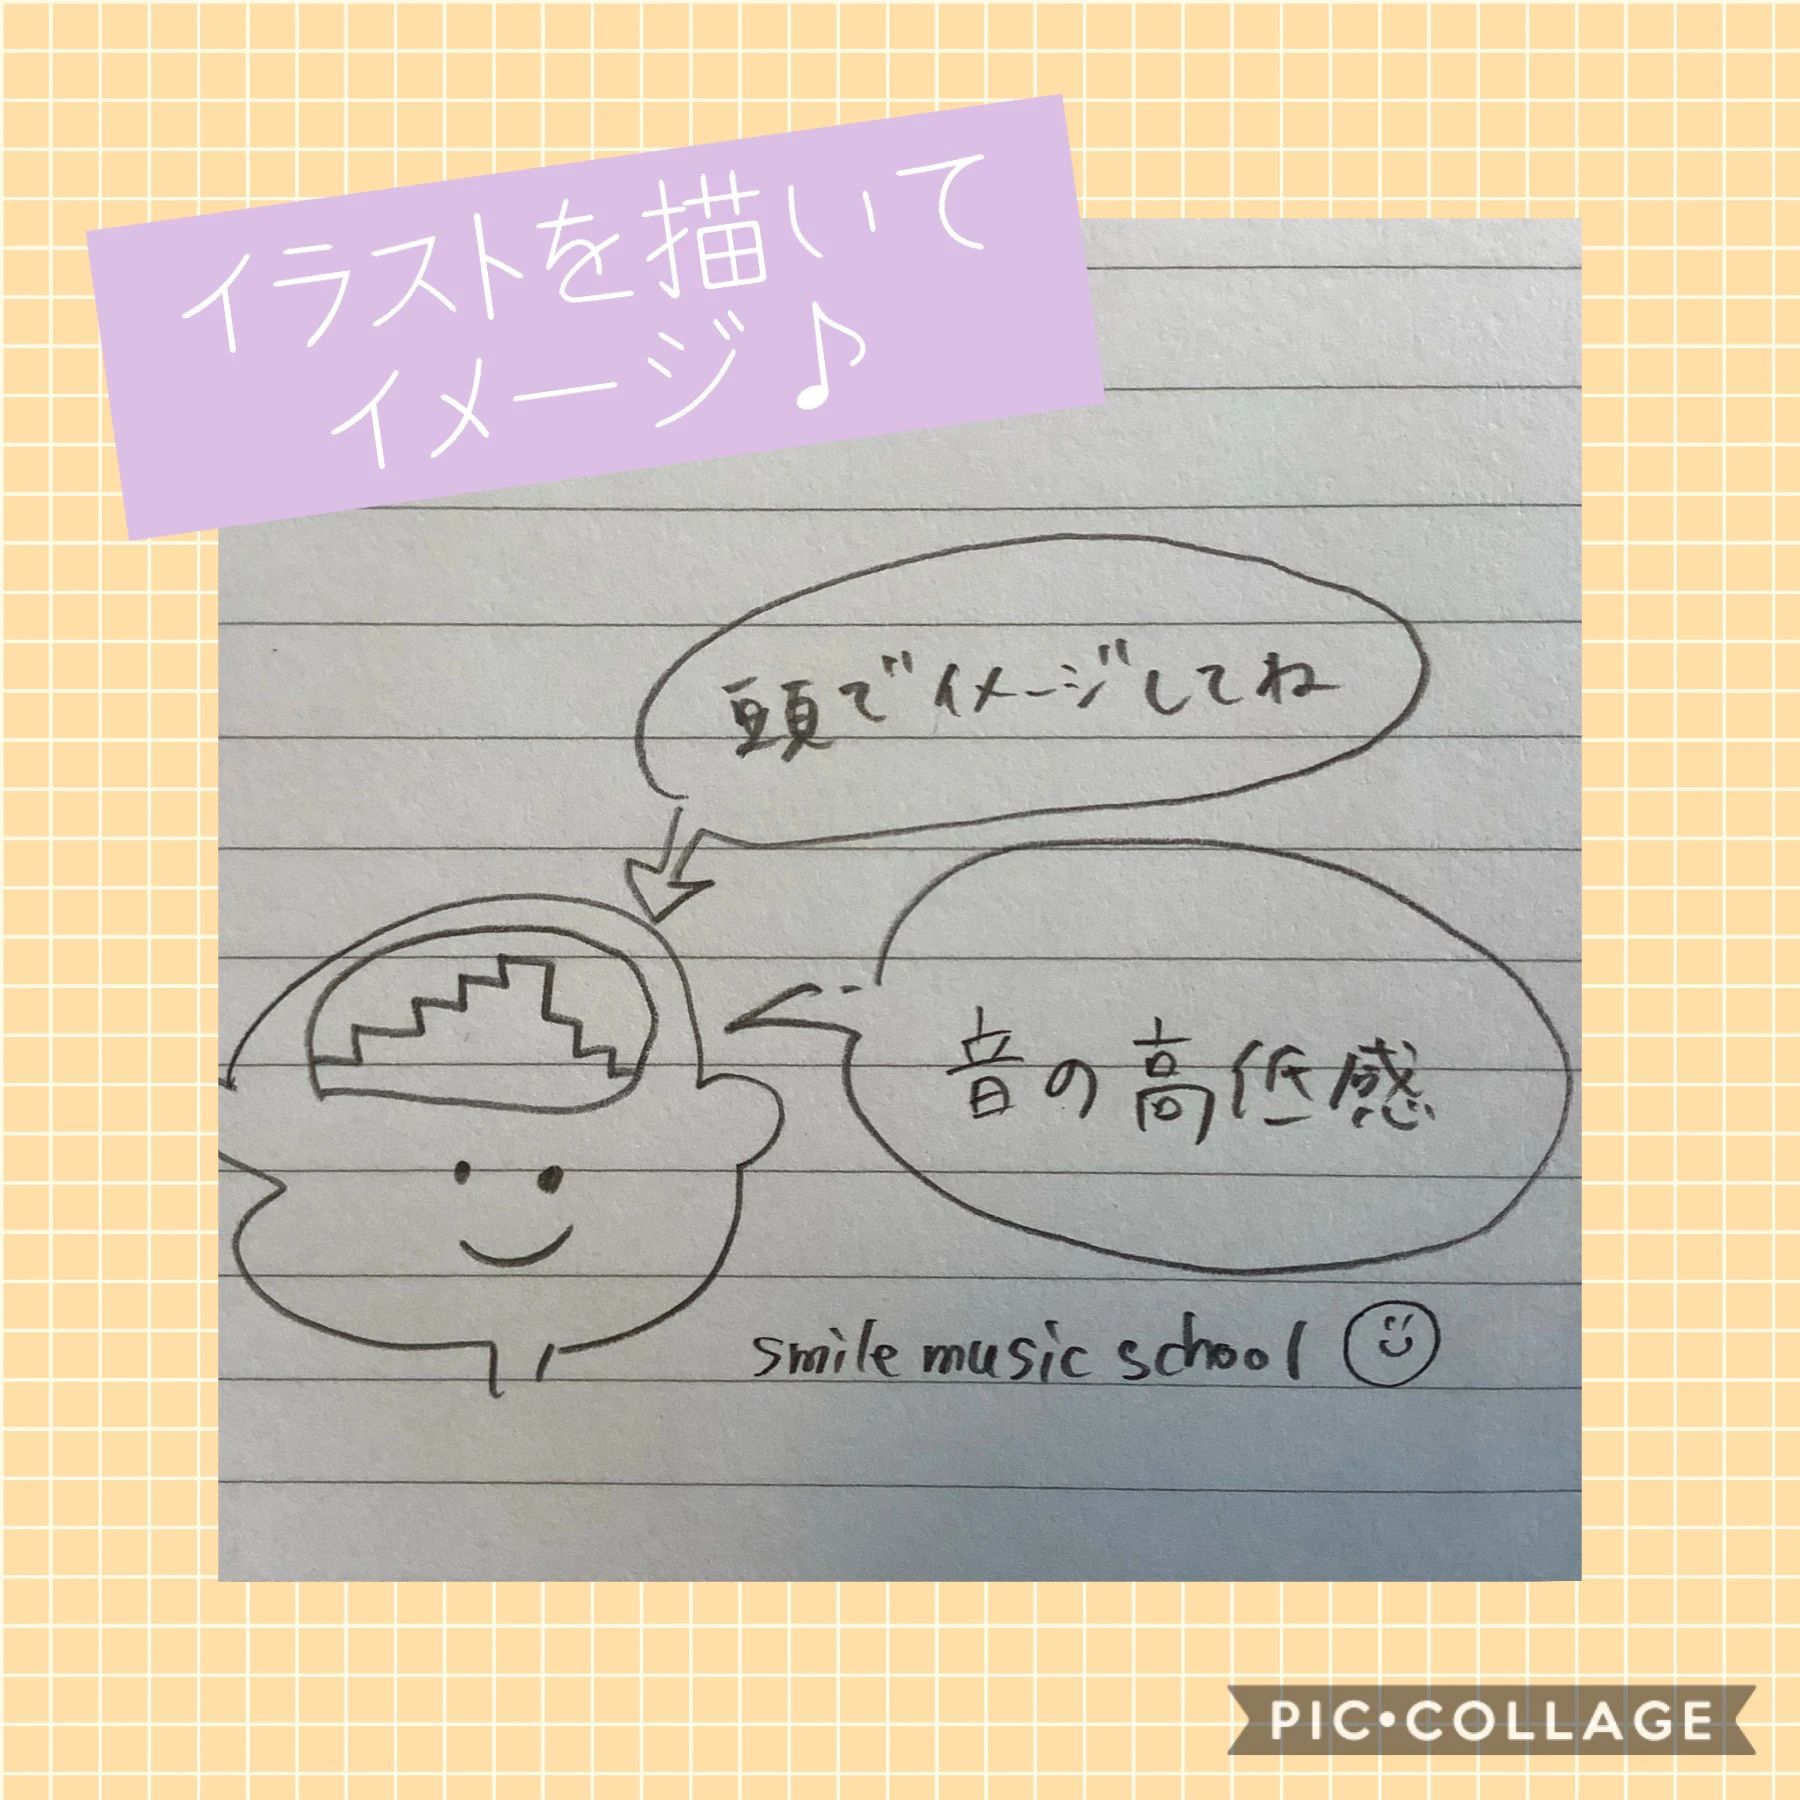 イラストを描いて
イメージ♪
頭でイメージしてね
音の高低感
smile music school
PIC•COLLAGE